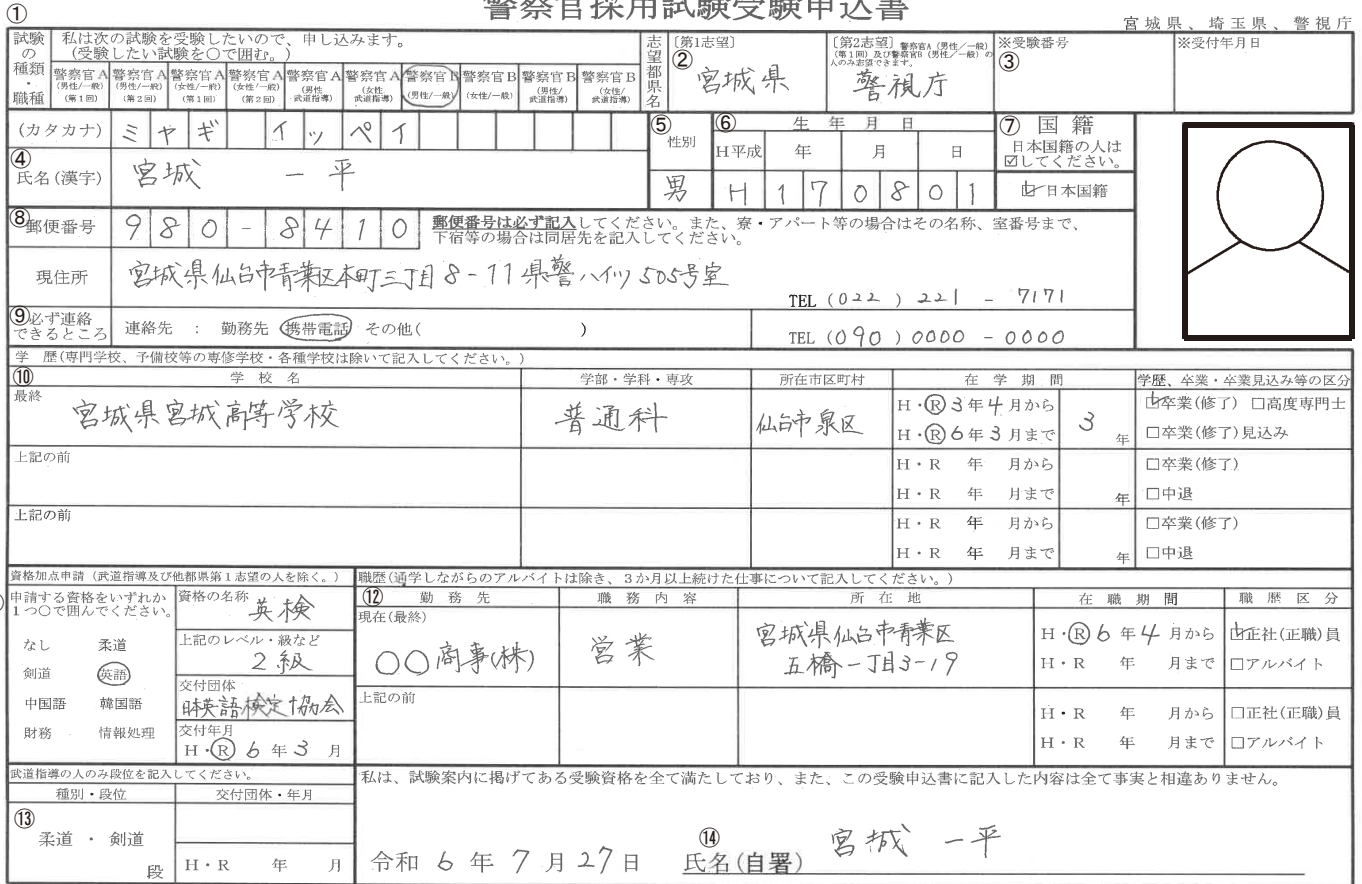 警察官採用試験受験申込書
①
宮城県、埼玉県、警視庁
試験の種類・職種
私は次の試験を受験したいので、申し込みます。
(受験したい試験を○で囲む。)
警察官A (男性/一般) (第1回)
警察官A (男性/一般) (第2回)
警察官A (女性/一般) (第1回)
警察官A (女性/一般) (第2回)
警察官A (男性 武道指導)
警察官A (女性 武道指導)
警察官B (男性/一般)
警察官B (女性/一般)
警察官B (男性/武道指導)
警察官B (女性/武道指導)
志望都県名
〔第1志望〕
② 宮城県
〔第2志望〕 警察官A(男性/一般)
(第1回)及び警察官B(男性/一般)の
人のみ志望できます。
警視庁
※受験番号
③
※受付年月日
(カタカナ) ミヤギ イッペイ
④
氏名(漢字) 宮城 一平
⑤
性別
男
⑥ 生年月日
H平成 年 月 日
H 1 7 0 8 0 1
⑦ 国籍
日本国籍の人は
☑してください。
☑日本国籍
⑧郵便番号 980-8410
郵便番号は必ず記入してください。また、寮・アパート等の場合はその名称、室番号まで、
下宿等の場合は同居先を記入してください。
現住所 宮城県仙台市青葉区本町三丁目8-11県警ハイツ505号室
TEL (022) 221 - 7171
⑨必ず連絡
できるところ
連絡先 : 勤務先 携帯電話 その他( )
TEL (090) 0000 - 0000
学 歴(専門学校、予備校等の専修学校・各種学校は除いて記入してください。)
⑩ 学校名 学部・学科・専攻 所在市区町村 在学期間 学歴、卒業・卒業見込み等の区分
最終
宮城県宮城高等学校 普通科 仙台市泉区
H・R 3年4月から
H・R 6年3月まで
3 年
☑卒業(修了) □高度専門士
□卒業(修了)見込み
上記の前
H・R 年 月から
H・R 年 月まで
年
□卒業(修了)
□中退
上記の前
H・R 年 月から
H・R 年 月まで
年
□卒業(修了)
□中退
資格加点申請(武道指導及び他都県第1志望の人を除く。)
申請する資格をいずれか
1つ○で囲んでください。
なし 柔道
剣道 英語
中国語 韓国語
財務 情報処理
資格の名称
英検
上記のレベル・級など
2級
交付団体
日本英語検定協会
交付年月
H・R 6年3月
職歴(通学しながらのアルバイトは除き、3か月以上続けた仕事について記入してください。)
⑫ 勤務先 職務内容 所在地 在職期間 職歴区分
現在(最終)
〇〇商事(株)
営業
宮城県仙台市青葉区
五橋一丁目3-19
H・R 6年4月から
H・R 年 月まで
☑正社(正職)員
□アルバイト
上記の前
H・R 年 月から
H・R 年 月まで
□正社(正職)員
□アルバイト
武道指導の人のみ段位を記入してください。
種別・段位 交付団体・年月
⑬
柔道 ・ 剣道
段
H・R 年 月
私は、試験案内に掲げてある受験資格を全て満たしており、また、この受験申込書に記入した内容は全て事実と相違ありません。
令和 6年7月27日
⑭
氏名(自署) 宮城 一平